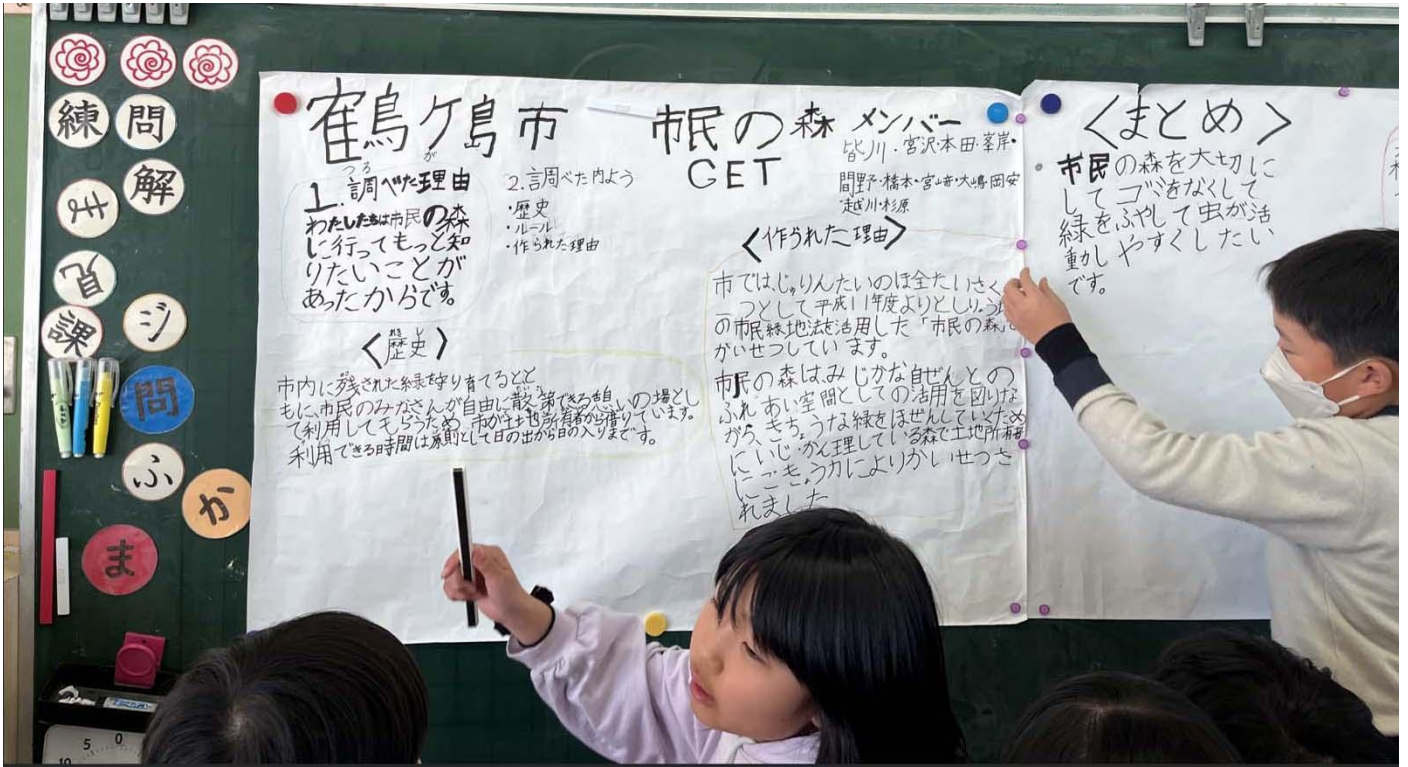 鶴ヶ島市
つる が
市民の森
GET
メンバー
皆川・宮沢・本田・峯岸・
間野・橋本・宮崎・大嶋・岡安
・越川・杉原
1.調べた理由
わたしたちは市民の森
に行ってもっと知
りたいことが
あったからです。
2.調べた内よう
・歴史
・ルール
・作られた理由
〈歴史〉
市内に残された緑を守り育てるとと
もに、市民のみなさんが自由に散策できる
いの場とし
て利用してもらうため、市が土地所有者から借りています。
利用できる時間は原則として日の出から日の入りまです。
〈作られた理由〉
市では、じゅりんたいのほ全たいさく
一つとして平成11年度よりとしりょ
の市民緑地法を活用した「市民の森」
がいせつしています。
市民の森は、みじかな自ぜんとの
ふれあい空間としての活用を図りな
がら、きちょうな緑をほぜんしていくため
にいじ・かん理している森で土地所有者
にごきょう力によりかいせつさ
れました
〈まとめ〉
市民の森を大切に
してゴミをなくして
緑をふやして虫が活
動しやすくしたい
です。
練
問
解
キ
自
課
ジ
問
ふ
か
ま
5 0
10